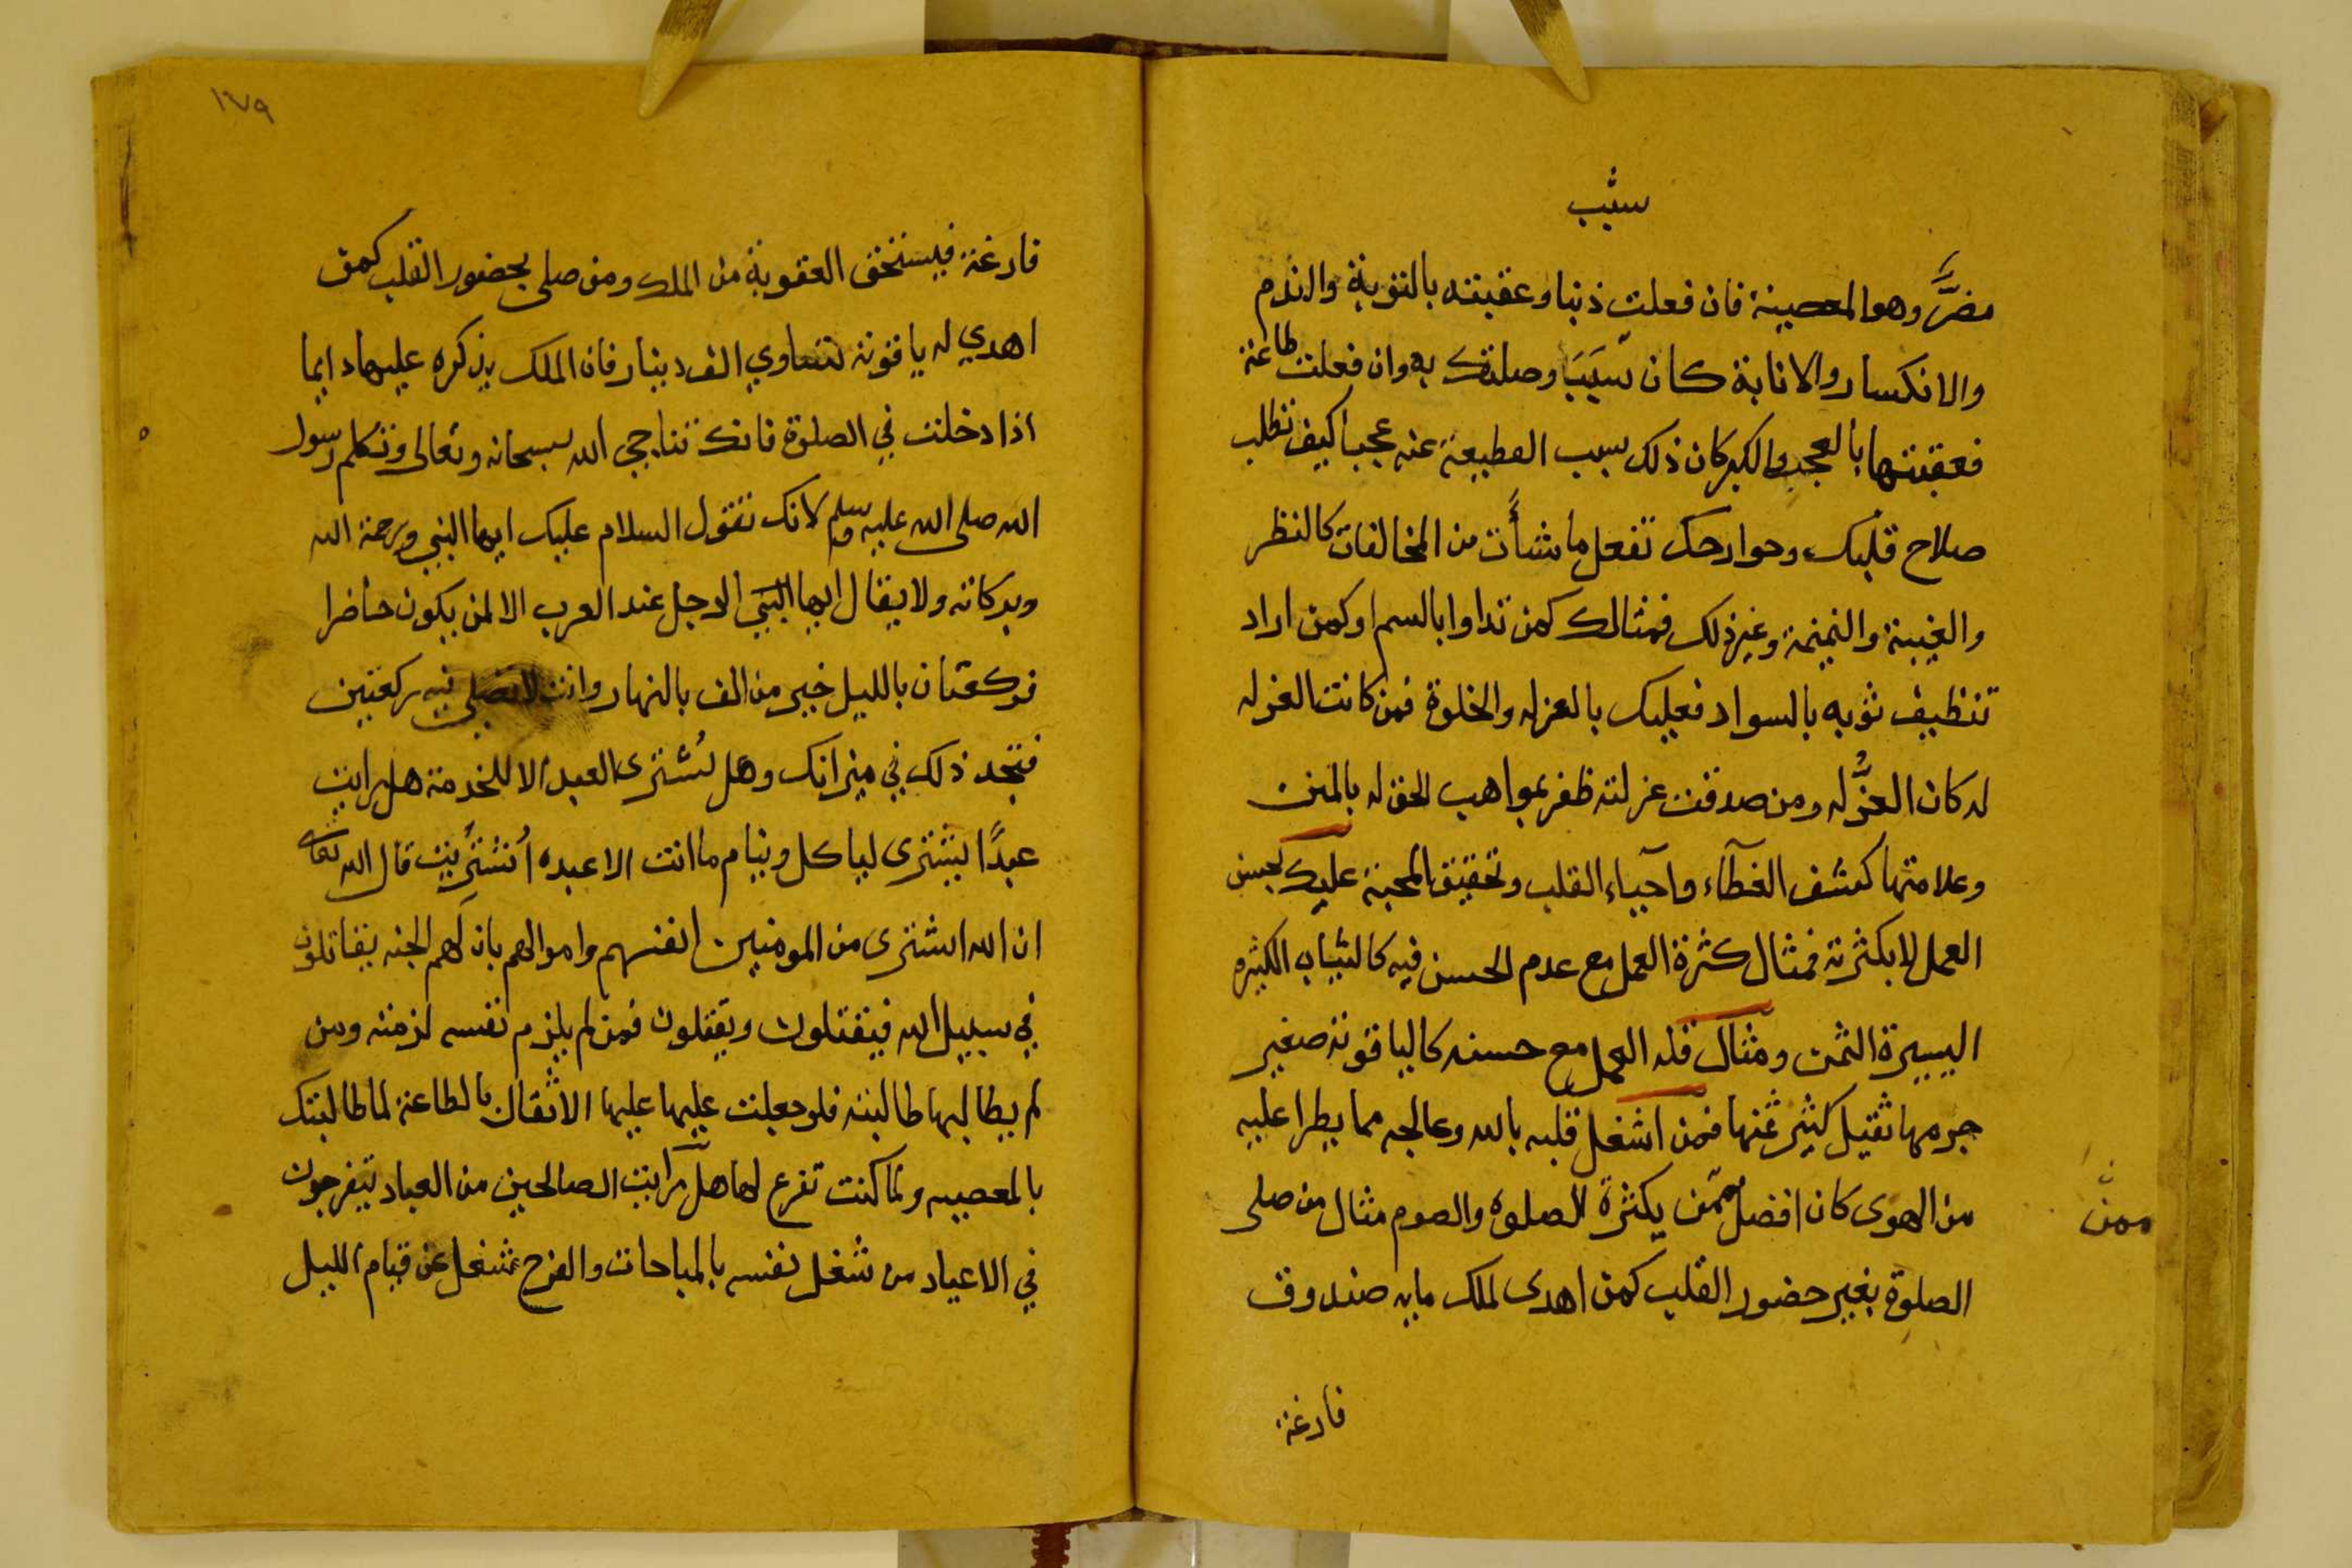 سبب
مضر وهو المعصية فان فعلت ذنبا وعقبته بالتوبة والندم
والانكسار والانابة كان سببا وصلتك به وان فعلت طاعة
فعقبتها بالعجب والكبر كان ذلك سبب القطيعة عنه عجبا كيف تطلب
صلاح قلبك وجوارحك تفعل ما شأت من المخالفات كالنظر
والغيبة والنميمة وغير ذلك فمثالك كمن تداوا بالسم او كمن اراد
تنظيف ثوبه بالسواد فعليك بالعزله والخلوة فمن كانت العزله
له كان العز له ومن صدقت عزلته ظفر بمواهب الحق له بالمنن
وعلامتها كشف الغطآء واحيآء القلب وتحقيق المحبة عليك بحسن
العمل لا بكثرته فمثال كثرة العمل مع عدم الحسن فيه كالثياب الكثيره
اليسيرة الثمن ومثال قله العمل مع حسنه كالياقوته صغير
جرمها ثقيل كثير ثمنها فمن اشغل قلبه بالله وعالجه مما يطرا عليه
من الهوى كان افضل ممن يكثرة الصلوه والصوم مثال من صلى
ممن
الصلوة بغير حضور القلب كمن اهدى لملك مايه صندوق
فارغة
١٧٩
فارغة فيستحق العقوبة من الملك ومن صلى بحضور القلب كمن
اهدي له ياقوتة تساوي الف دينار فان الملك يذكره عليها دايما
اذا دخلت في الصلوة فانك تناجي الله سبحانه وتعالى وتكلم رسول
الله صلى الله عليه وسلم لانك تقول السلام عليك ايها النبي ورحمة الله
وبركاته ولا يقال ايها النبي الرجل عند العرب الا لمن يكون حاضرا
فركعتان بالليل خير من الف بالنهار وانت لا تصلي فيه ركعتين
فتجد ذلك في ميزانك وهل تشترى العبد الا للخدمة هل رايت
عبدا يشترى لياكل وينام ما انت الا عبده اُشتريت قال الله تعالى
ان الله اشترى من المومنين انفسهم واموالهم بان لهم الجنه يقاتلون
في سبيل الله فيقتلون ويقتلون فمن لم يلزم نفسه لزمته ومن
لم يطالبها طالبته فلو جعلت عليها عليها الاثقال بالطاعة لما طالبتك
بالمعصيه ولما كنت تفرع لها هل رايت الصالحين من العباد يتفرجون
في الاعياد من شغل نفسه بالمباحات والفرح شغل عن قيام الليل